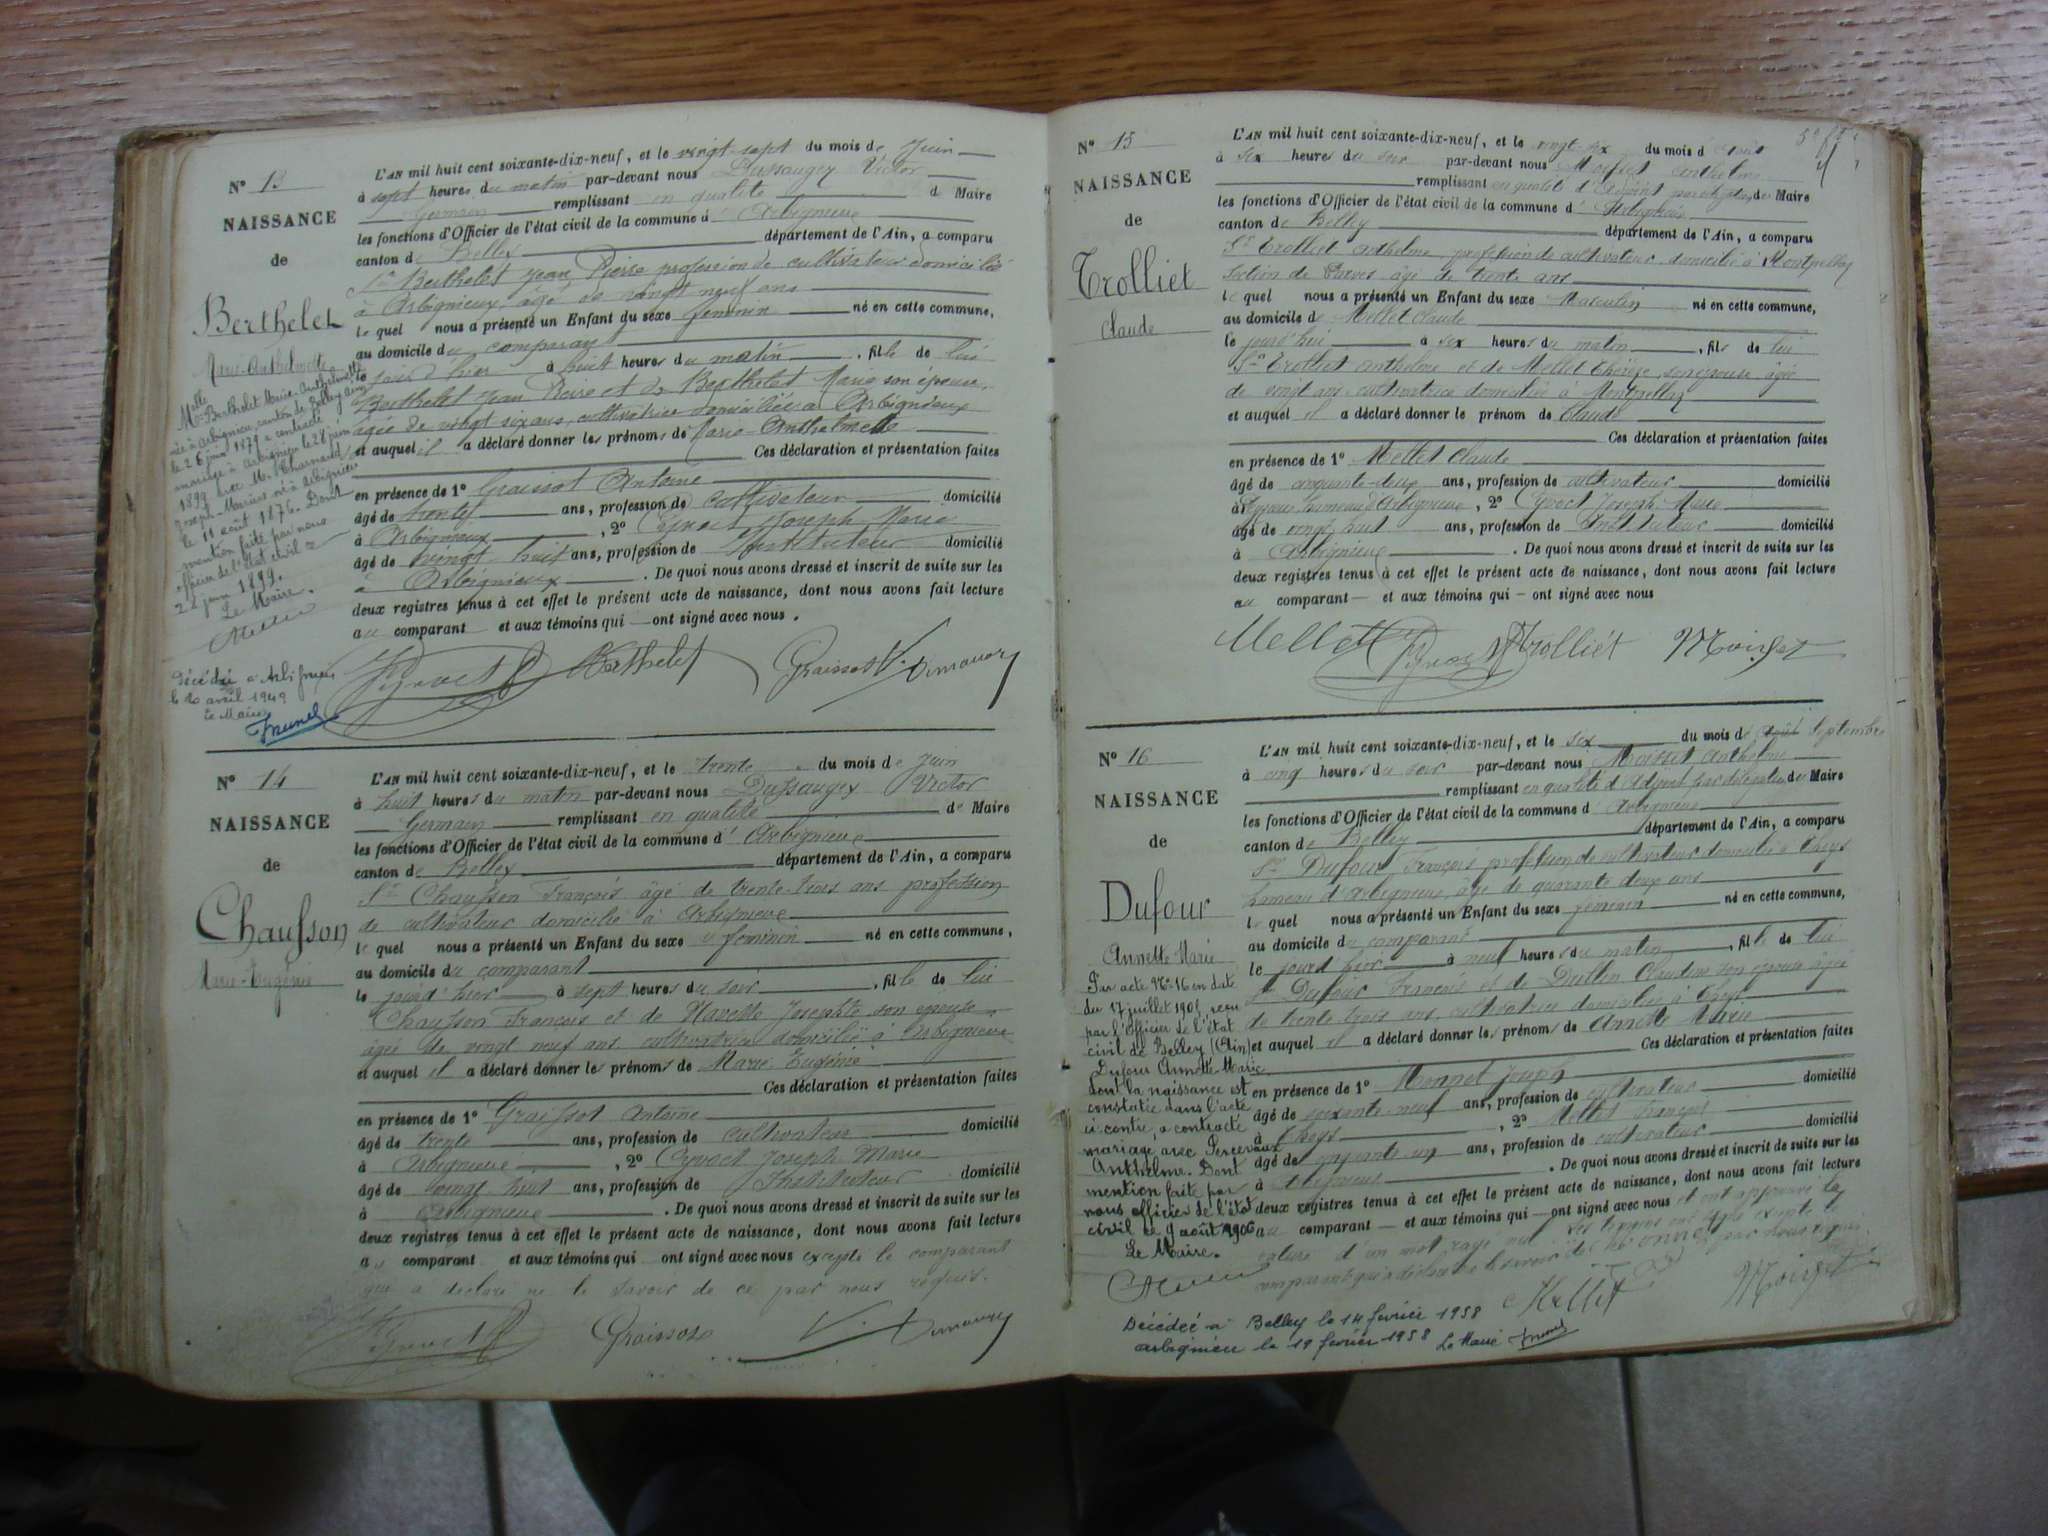 N° 13
NAISSANCE
de
Berthelet
Marie-Anthelmette
Melle Berthelet Marie-Anthelmette
née à Arbignieu, canton de Belley Ain
le 26 juin 1879 a contracté
mariage à Arbignieu le 24 juin
1899 avec M. Charnaud
Joseph-Marius né à Arbignieu
le 11 août 1876. Dont
mention faite par nous
officier de l'état civil
1899.
Le Maire.
décédée à Arbignieu
le 20 avril 1949
Le Maire
L'AN mil huit cent soixante-dix-neuf, et le vingt sept du mois de Juin
à sept heures du matin par-devant nous Dussaugey Victor
Germain remplissant en qualité de Maire
les fonctions d'Officier de l'état civil de la commune d'Arbignieux
canton de Belley département de l'Ain, a comparu
Sr Berthelet Jean Pierre profession de cultivateur domicilié
à Arbignieux, âgé de vingt neuf ans
le quel nous a présenté un Enfant du sexe féminin né en cette commune,
au domicile du comparant
le jour d'hier à huit heures du matin, fille de lui
Berthelet Jean Pierre et de Berthelet Marie son épouse,
âgée de vingt six ans, cultivatrice domiciliée à Arbignieux
et auquel il a déclaré donner les prénoms de Marie-Anthelmette
Ces déclaration et présentation faites
en présence de 1° Graissot Antoine
âgé de trente ans, profession de cultivateur domicilié
à Arbignieux, 2° Joseph Marie
âgé de vingt huit ans, profession de Instituteur domicilié
à Arbignieux. De quoi nous avons dressé et inscrit de suite sur les
deux registres tenus à cet effet le présent acte de naissance, dont nous avons fait lecture
au comparant et aux témoins qui ont signé avec nous.
Berthelet Graissot
N° 14
NAISSANCE
de
Chausson
Marie-Eugénie
L'AN mil huit cent soixante-dix-neuf, et le trente du mois de Juin
à huit heures du matin par-devant nous Dussaugey Victor
Germain remplissant en qualité de Maire
les fonctions d'Officier de l'état civil de la commune d'Arbignieux
canton de Belley département de l'Ain, a comparu
Sr Chausson François âgé de trente-trois ans profession
de cultivateur domicilié à Arbignieux
le quel nous a présenté un Enfant du sexe féminin né en cette commune,
au domicile du comparant
le jour d'hier à sept heures du soir, fille de lui
Chausson François et de Josephte son épouse
âgée de vingt neuf ans cultivatrice domiciliée à Arbignieux
et auquel il a déclaré donner les prénoms de Marie Eugénie
Ces déclaration et présentation faites
en présence de 1° Graissot Antoine
âgé de trente ans, profession de cultivateur domicilié
à Arbignieux, 2° Joseph Marie
âgé de vingt huit ans, profession de Instituteur domicilié
à Arbignieux. De quoi nous avons dressé et inscrit de suite sur les
deux registres tenus à cet effet le présent acte de naissance, dont nous avons fait lecture
au comparant et aux témoins qui ont signé avec nous excepté le comparant
qui a déclaré ne le savoir de ce par nous requis.
Graissot
N° 15
NAISSANCE
de
Trolliet
Claude
L'AN mil huit cent soixante-dix-neuf, et le vingt six du mois d'Août
à six heures du soir par-devant nous Moisset anthelme
remplissant en qualité d'Adjoint par délégation de Maire
les fonctions d'Officier de l'état civil de la commune d'Arbignieux
canton de Belley département de l'Ain, a comparu
Sr Trolliet anthelme, profession de cultivateur domicilié à Montpellaz
section de âgé de trente ans
le quel nous a présenté un Enfant du sexe Masculin né en cette commune,
au domicile de Mellet Claude
le jourd'hui à six heures du matin, fils de lui
Sr Trolliet anthelme et de Mellet Thérèse son épouse âgée
de vingt ans cultivatrice domiciliée à Montpellaz
et auquel il a déclaré donner le prénom de Claude
Ces déclaration et présentation faites
en présence de 1° Mellet Claude
âgé de ans, profession de cultivateur domicilié
à hameau d'Arbignieux, 2° Joseph Marie
âgé de vingt huit ans, profession de Instituteur domicilié
à Arbignieux. De quoi nous avons dressé et inscrit de suite sur les
deux registres tenus à cet effet le présent acte de naissance, dont nous avons fait lecture
au comparant et aux témoins qui ont signé avec nous
Mellet Trolliet Moisset
N° 16
NAISSANCE
de
Dufour
Annette Marie
Par acte N° 16 en date
du 17 juillet 1906 reçu
par l'officier de l'état
civil de Belley (Ain)
Dufour Annette Marie
dont la naissance est
constatée dans l'acte
ci-contre, a contracté
mariage avec Percevaux
Anthelme. Dont
mention faite par
nous officier de l'état
civil le 9 août 1906
Le Maire.
L'AN mil huit cent soixante-dix-neuf, et le six du mois de août Septembre
à cinq heures du soir par-devant nous Moisset Anthelme
remplissant en qualité d'Adjoint par délégation de Maire
les fonctions d'Officier de l'état civil de la commune d'Arbignieux
canton de Belley département de l'Ain, a comparu
Sr Dufour François profession de cultivateur domicilié à Thoys
hameau d'Arbignieux, âgé de quarante deux ans
le quel nous a présenté un Enfant du sexe féminin né en cette commune,
au domicile du comparant
le jourd'hier à neuf heures du matin, fille de lui
Sr Dufour François et de Claudine son épouse âgée
de trente trois ans cultivatrice domiciliée à Thoys
et auquel il a déclaré donner les prénoms de Annette Marie
Ces déclaration et présentation faites
en présence de 1° Monnet Joseph
âgé de soixante-neuf ans, profession de cultivateur domicilié
à Thoys, 2° Mellet François
âgé de ans, profession de cultivateur domicilié
à Arbignieux. De quoi nous avons dressé et inscrit de suite sur les
deux registres tenus à cet effet le présent acte de naissance, dont nous avons fait lecture
au comparant et aux témoins qui ont signé avec nous et ont approuvé la
rature d'un mot rayé nul
comparant qui a déclaré ne le savoir
Mellet Moisset
Décédée à Belley le 14 février 1958
Arbignieu le 19 février 1958 Le Maire